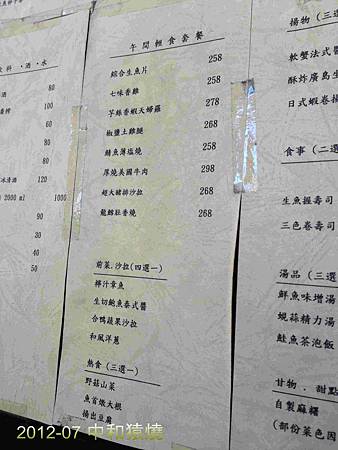 午間輕食套餐
綜合生魚片 258
七味香雞 258
芋絲香蝦天婦羅 278
椒鹽土雞腿 268
鯖魚薄塩燒 268
厚燒美國牛肉 298
超大豬排沙拉 268
龍鱈肚香燒 268
前菜.沙拉(四選一)
檸汁章魚
生切鮑魚泰式醬
合鴨蘋果沙拉
和風洋蔥
熱食(三選一)
野菇山菜
魚首燉大根
揚出豆腐
飲料・酒・水
80
90
80
90
冰清酒 120
2000 ml 1000
90
40
50
50
揚物(三選
軟蟹法式醬
酥炸廣島生
日式蝦卷揚
食事(二選
生魚握壽司
三色卷壽司
湯品(三選
鮮魚味增湯
蜆蒜精力湯
鮭魚茶泡飯
甘物．甜點
自製麻糬
(部份菜色因
2012-07 中和猿燒